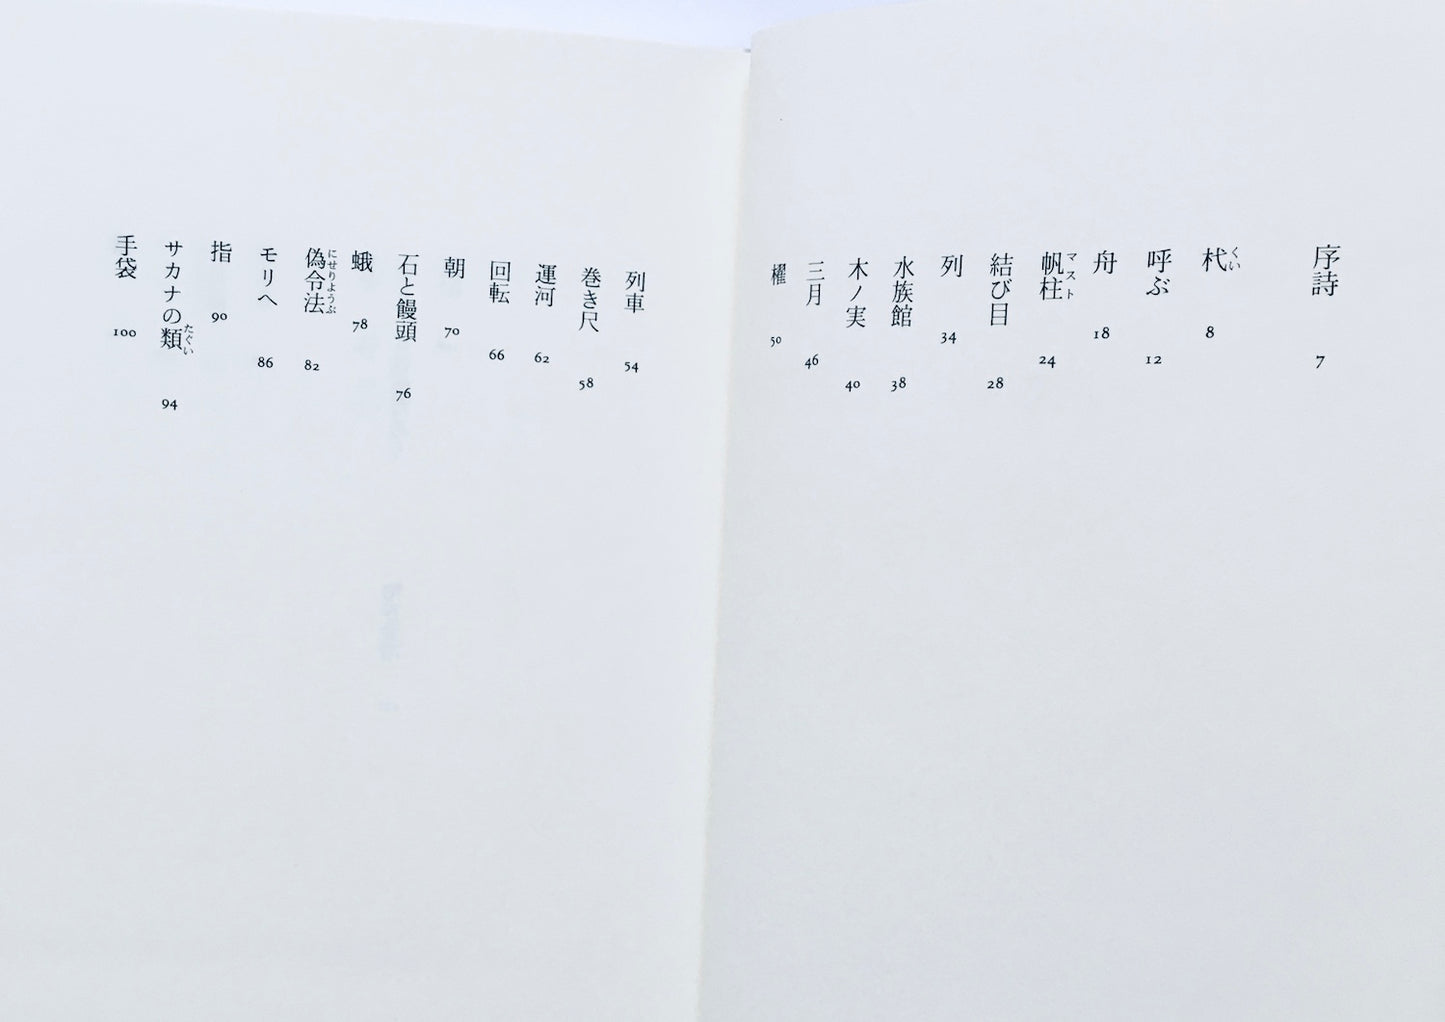 序詩 7
杙 くい 8
呼ぶ 12
舟 18
帆柱 マスト 24
結び目 28
列 34
水族館 38
木ノ実 40
三月 46
櫂 50
列車 54
巻き尺 58
運河 62
回転 66
朝 70
石と饅頭 76
蛾 78
偽令法 にせりようぶ 82
モリへ 86
指 90
サカナの類 たぐい 94
手袋 100